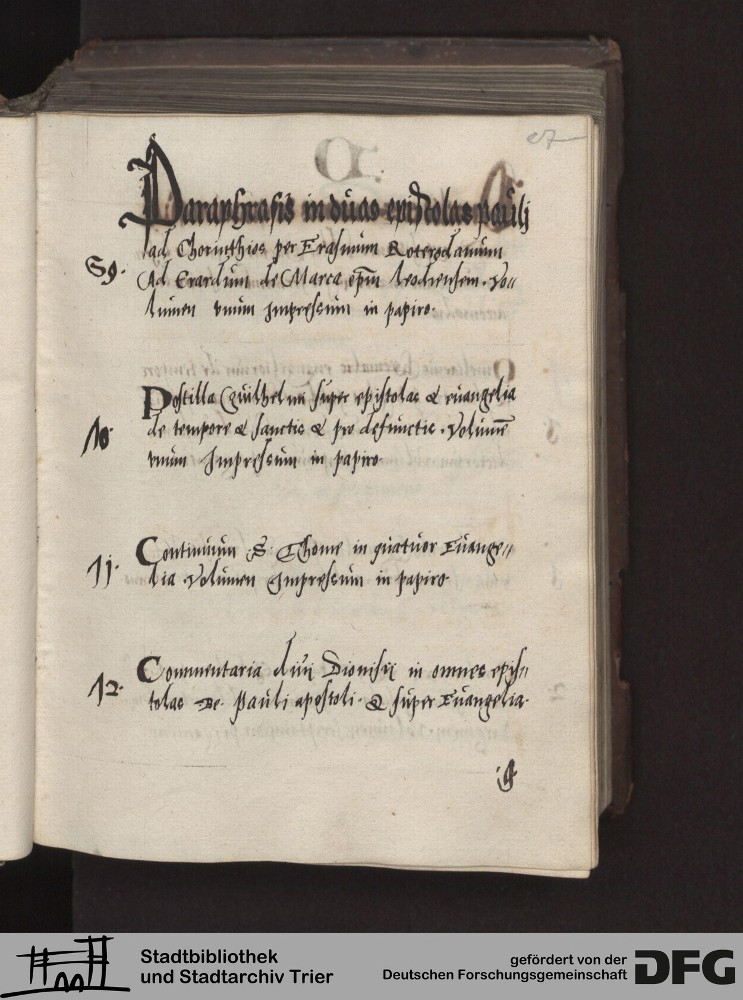 27
Paraphrasis in duas epistolas pauli
ad Chorinthios per Erasmum Roterodamum
59. Ad Erardum de Marca ep̄m leodiensem. Vo//
lumen vnum Impressum in papiro.
Postilla Guilhelmi super epistolas & euangelia
10. de tempore & sanctis & pro defunctis. Volumē
vnum Impressum in papiro.
Continuum S. Thome in quatuor Euange//
11. lia Volumen Impressum in papiro.
Commentaria diui Dionisii in omnes epis//
12. tolas Be. Pauli apostoli. & super Euangelia.
Stadtbibliothek
und Stadtarchiv Trier
gefördert von der
Deutschen Forschungsgemeinschaft
DFG